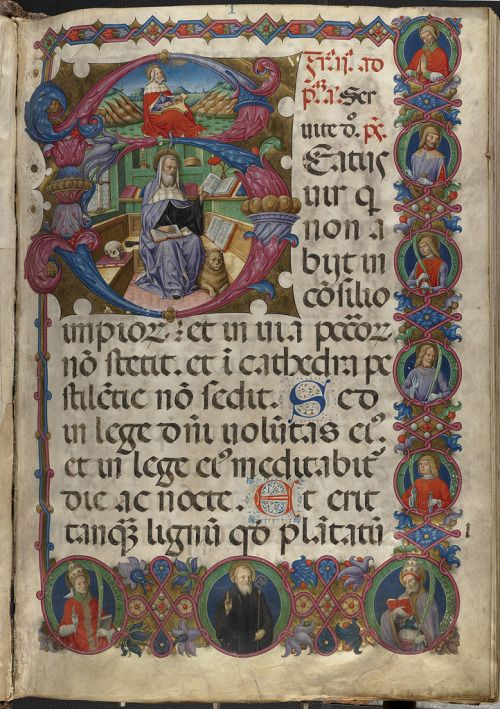 p̄ꝛ̄a. Ser
uite d̄. p̄x̄.
Eatus
uir q
non a
bijt in
cōsilio
impioꝝ: et in uia peccoꝝ
nō stetit. et ī cathedra pe
stilētie nō sedit. Sed
in lege dn̄i uolūtas eiꝰ.
et in lege eiꝰ meditabit᷑
die ac nocte. Et erit
tanqꝫ lignū qḋ plātatū